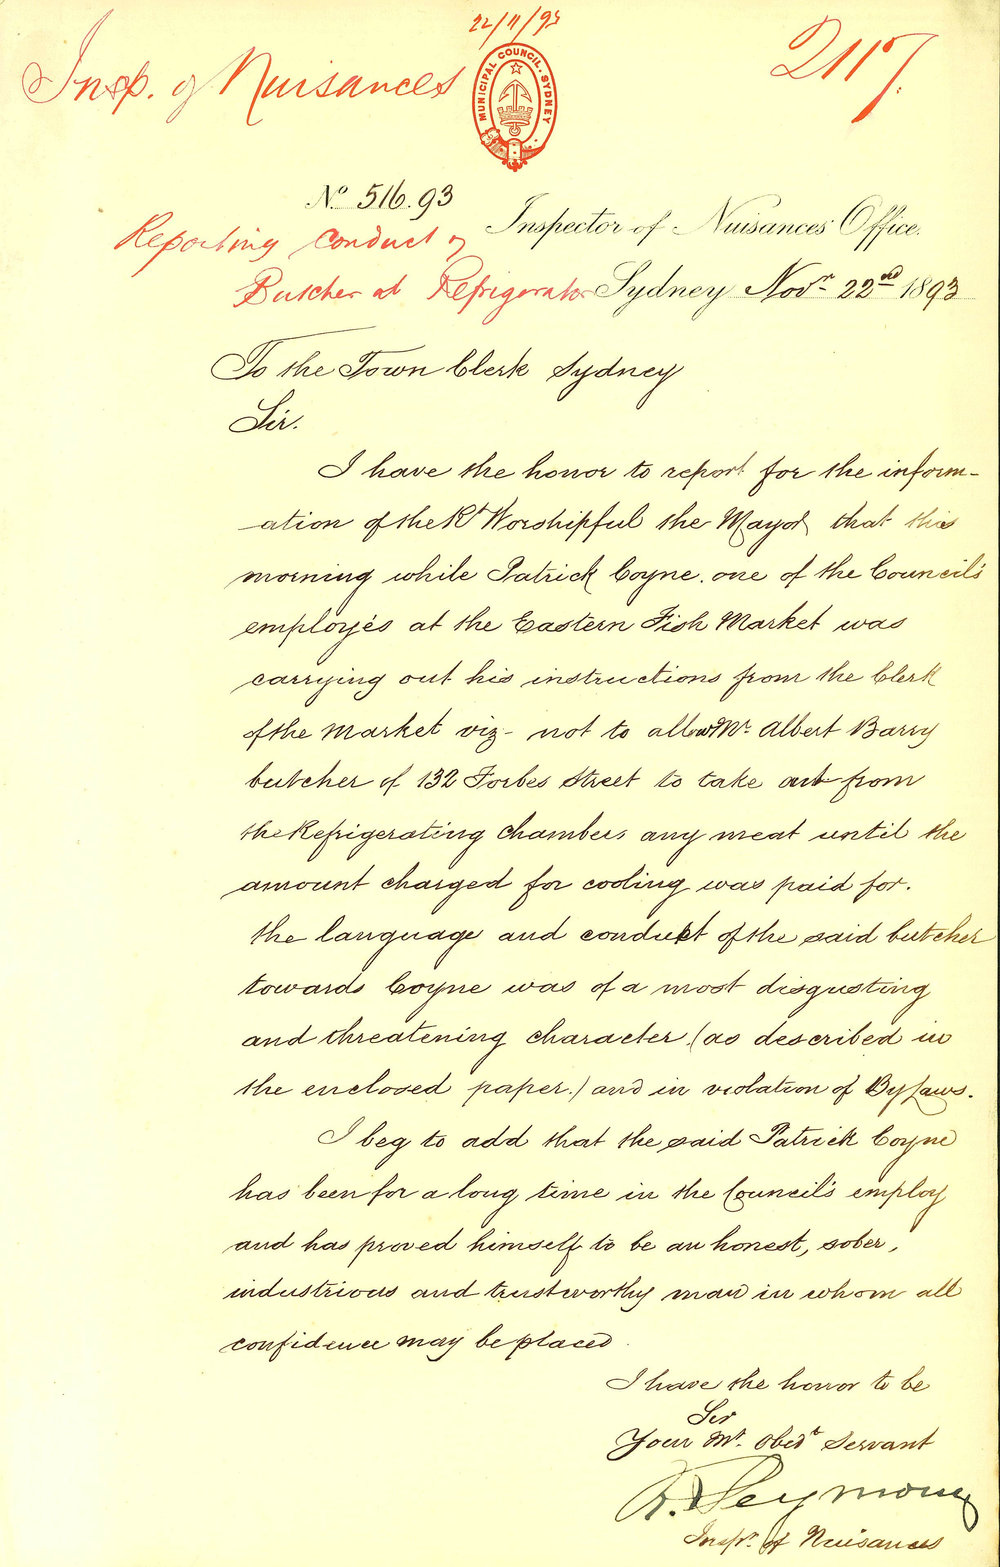 22/11/93
Insp. of Nuisances
2117.
MUNICIPAL COUNCIL. SYDNEY
No. 516.93
Inspector of Nuisances Office.
Reporting conduct of
Butcher at Refrigerator
Sydney Novr 22nd 1893
To the Town Clerk Sydney
Sir.
I have the honor to report for the inform-
-ation of the Rt Worshipful the Mayor that this
morning while Patrick Coyne. one of the Council's
employés at the Eastern Fish Market was
carrying out his instructions from the Clerk
of the Market viz - not to allow Mr. Albert Barry
butcher of 132 Forbes Street to take out from
the Refrigerating Chambers any meat until the
amount charged for cooling was paid for.
the language and conduct of the said butcher
towards Coyne was of a most disgusting
and threatening character (as described in
the enclosed paper.) and in violation of By Laws.
I beg to add that the said Patrick Coyne
has been for a long time in the Council's employ
and has proved himself to be an honest, sober,
industrious and trustworthy man in whom all
confidence may be placed.
I have the honor to be
Sir
Your Mt. Obedt Servant
R. Seymour
Inspr. of Nuisances